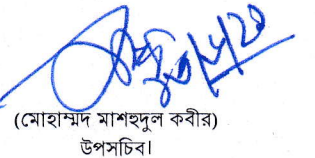 (মোহাম্মদ মাশহুদুল কবীর)
উপসচিব।